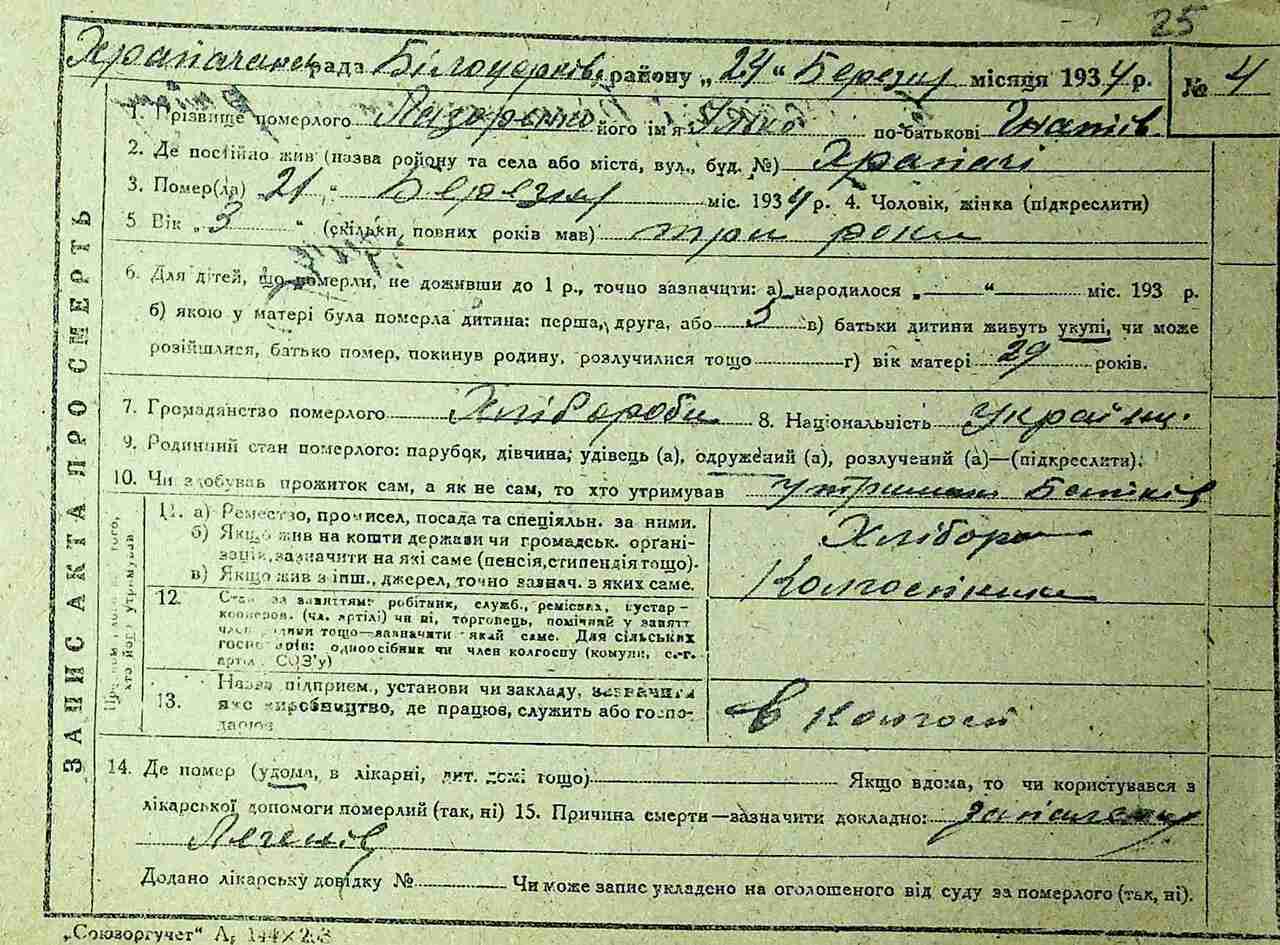 25
Храпачанск рада Білоцерків. району „24“ Березня місяця 1934 р. № 4
1. Прізвище померлого Лазаренко його ім'я по-батькові Гнатів
2. Де постійно жив (назва району та села або міста, вул., буд. №) Храпачі
3. Помер(ла) 21 „ Березня міс. 1934 р. 4. Чоловік, жінка (підкреслити)
5 Вік „ 3 “ (скільки повних років мав) три роки
6. Для дітей, що померли, не доживши до 1 р., точно зазначити: а) народилося „ “ міс. 193 р.
б) якою у матері була померла дитина: перша, друга, або 3 в) батьки дитини живуть укупі, чи може
розійшлися, батько помер, покинув родину, розлучилися тощо г) вік матері 29 років.
7. Громадянство померлого Хлібороби 8. Національність україн.
9. Родинний стан померлого: парубок, дівчина, удівець (а), одружений (а), розлучений (а)—(підкреслити).
10. Чи здобував прожиток сам, а як не сам, то хто утримував утриман Батьків
ЗАПИС АКТА ПРО СМЕРТЬ
того,
хто його утримував
11. а) Ремество, промисел, посада та спеціяльн. за ними.
б) Якщо жив на кошти держави чи громадськ. органі-
зацій, зазначити на які саме (пенсія, стипендія тощо).
в) Якщо жив з інш., джерел, точно зазнач. з яких саме.
Хлібороб
Колгоспники
12. за заняттям: робітник, служб., ремісник, кустар-
кооперов. (чл. артілі) чи ні, торговець, помічний у занятт
член родини тощо—зазначити який саме. Для сільських
господарів: одноосібник чи член колгоспу (комуни, с.-г.
артіл. СОЗ'у)
13. Назва підприєм., установи чи закладу, зазначити
яке виробництво, де працює, служить або госпо-
дарює
в колгоспі
14. Де помер (удома, в лікарні, дит. домі тощо) Якщо вдома, то чи користувався з
лікарської допомоги померлий (так, ні) 15. Причина смерти—зазначити докладно: запалення
Легенів
Додано лікарську довідку № Чи може запис укладено на оголошеного від суду за померлого (так, ні).
„Союзоргучет“ А, 144×2